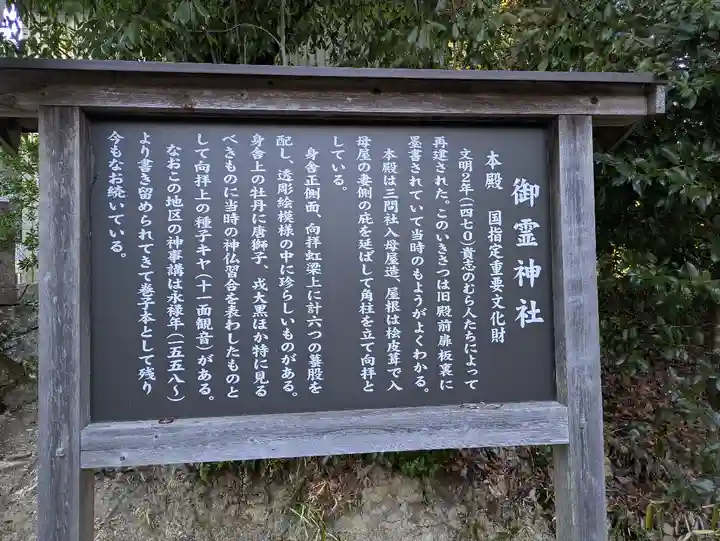 御霊神社
本殿 国指定重要文化財
文明2年(一四七〇)貴志のむら人たちによって
再建された。このいきさつは旧殿前扉板裏に
墨書されていて当時のもようがよくわかる。
本殿は三間社入母屋造、屋根は桧皮葺で入
母屋の妻側の庇を延ばして角柱を立て向拝と
している。
身舎正側面、向拝虹梁上に計六つの蟇股を
配し、透彫絵模様の中に珍らしいものがある。
身舎上の牡丹に唐獅子、戎大黒ほか特に見る
べきものに当時の神仏習合を表わしたものと
して向拝上の種子キヤ(十一面観音)がある。
なおこの地区の神事講は永禄年(一五五八〜)
より書き留められてきて巻子本として残り
今もなお続いている。